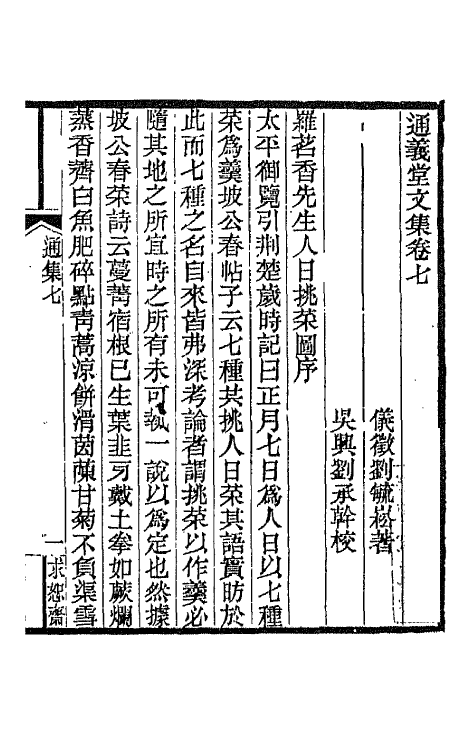 通義堂文集卷七
儀徵劉毓崧著
吳興劉承幹校
羅茗香先生人日挑菜圖序
太平御覽引荆楚歲時記曰正月七日爲人日以七種
菜爲羹坡公春帖子云七種共挑人日菜其語實昉於
此而七種之名自來皆弗深考論者謂挑菜以作羹必
隨其地之所宜時之所有未可執一說以爲定也然據
坡公春菜詩云蔓菁宿根已生葉韭牙戴土拳如蕨爛
蒸香薺白魚肥碎點靑蒿涼餅滑茵蔯甘菊不負渠雪
通集七
一
求恕齋